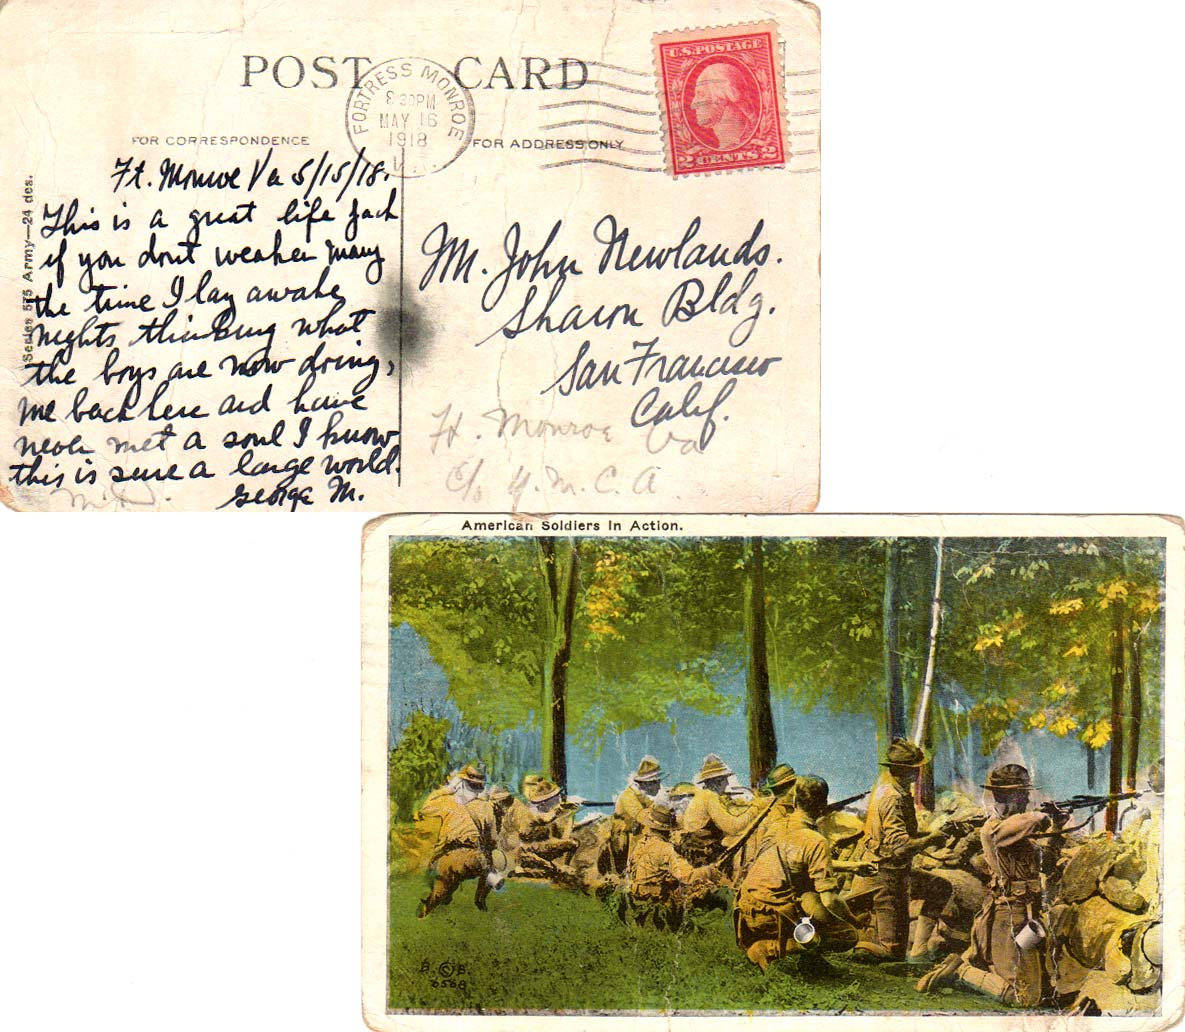 POST CARD
FORTRESS MONROE
8 30PM
MAY 16
1918
VA.
U.S. POSTAGE
2 CENTS 2
FOR CORRESPONDENCE
FOR ADDRESS ONLY
Series 575 Army—24 des.
Ft. Monroe Va 5/15/18.
This is a great life Jack
if you dont weaken many
the time I lay awake
nights thinking what
the boys are now doing,
me back here and have
never met a soul I know
this is sure a large world.
George M.
Mr. John Newlands.
Sharon Bldg.
San Francisco
Calif.
Ft. Monroe Va
c/o Y.M.C.A.
American Soldiers in Action.
B. © B.
6568